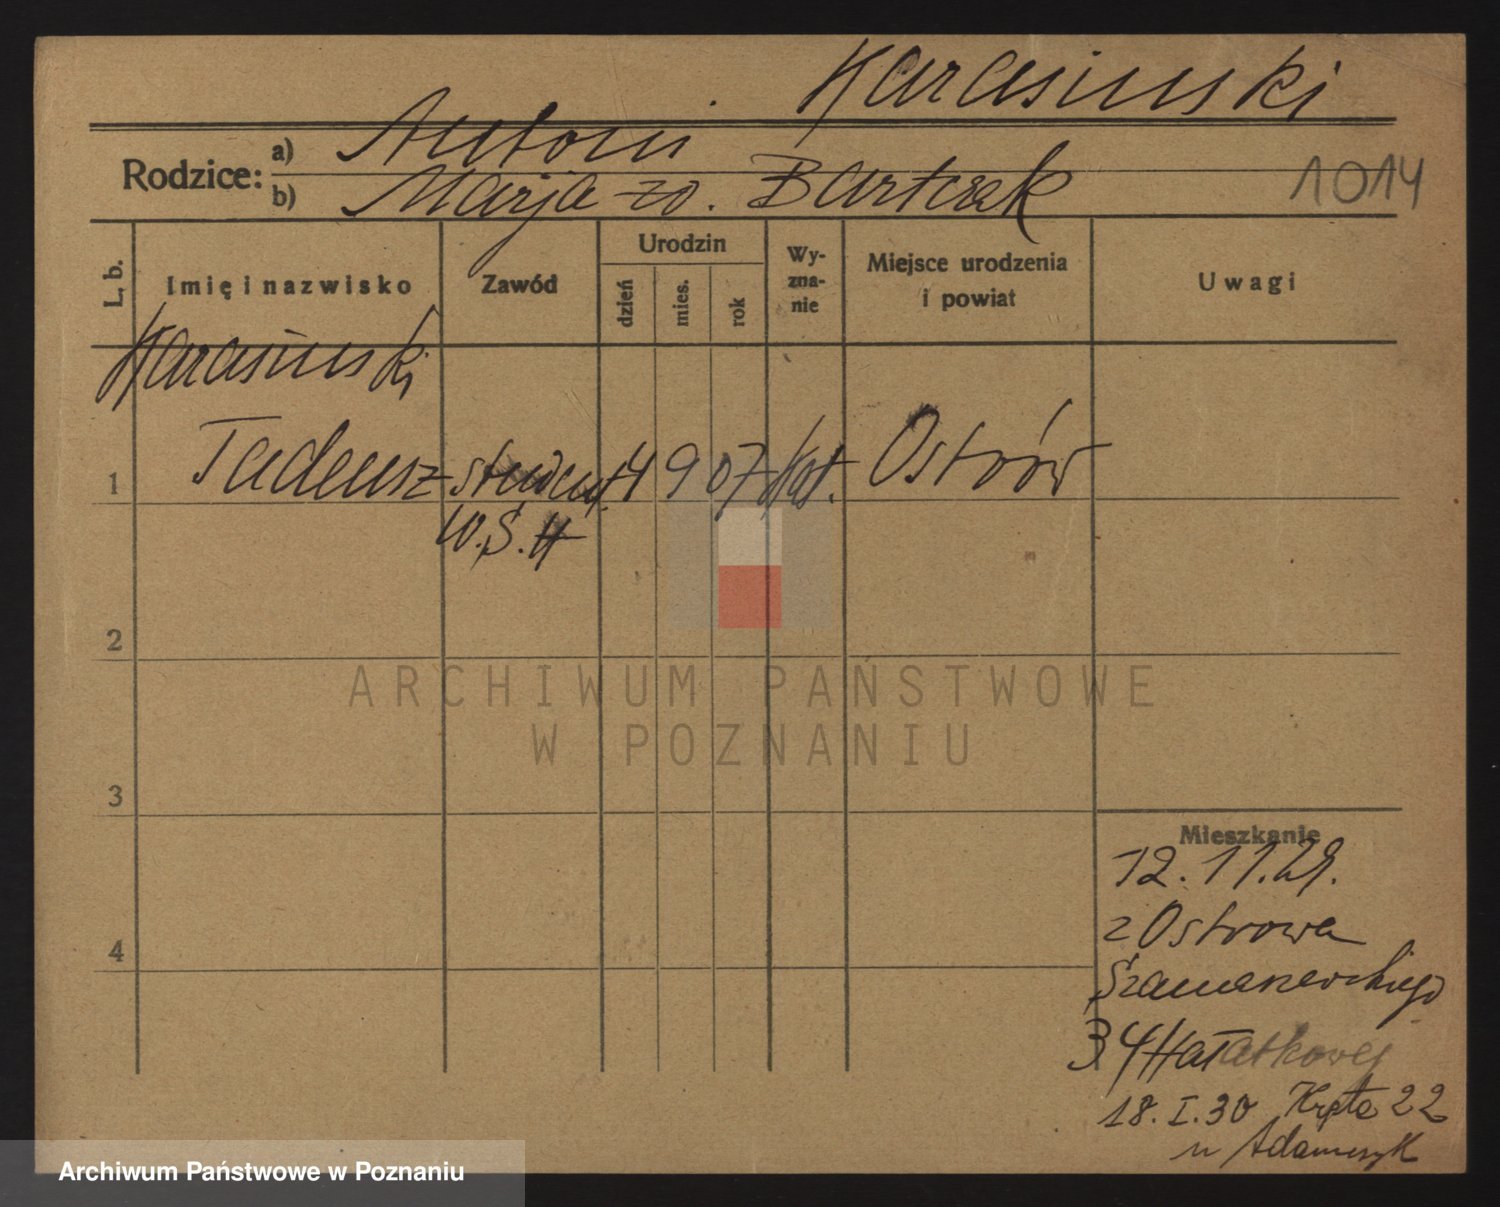 Karasinski
Rodzice: a) Antoni
b) Marja zd. Bartczak
1014
L. b.
Imię i nazwisko
Zawód
Urodzin
dzień
mies.
rok
Wy-
zna-
nie
Miejsce urodzenia
i powiat
Uwagi
Karasinski
1 Tadeusz student 4 9 07 kat. Ostrów
W.S.H
2
3
4
Mieszkanie
12.11.29.
z Ostrowa
Szamarzewskiego
34
18.I.30 Kręta 22
u Adamczyk
ARCHIWUM PAŃSTWOWE
W POZNANIU
Archiwum Państwowe w Poznaniu